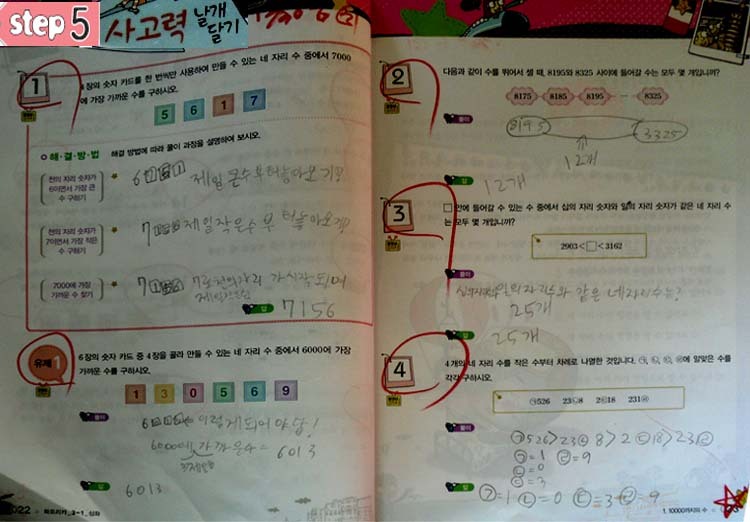 step 5 사고력 날개 달기
1
4장의 숫자 카드를 한 번씩만 사용하여 만들 수 있는 네 자리 수 중에서 7000
에 가장 가까운 수를 구하시오.
5 6 1 7
해·결·방·법 해결 방법에 따라 풀이 과정을 설명하여 보시오.
천의 자리 숫자가
6이면서 가장 큰
수 구하기
제일 큰수부터 놓아오기!
천의 자리 숫자가
7이면서 가장 작은
수 구하기
제일작은수 부터놓아오기
7000에 가장
가까운 수 찾기
답
7156
유제 1
6장의 숫자 카드 중 4장을 골라 만들 수 있는 네 자리 수 중에서 6000에 가장
가까운 수를 구하시오.
1 3 0 5 6 9
풀이
이렇게되어야 답!
6000에 가까운수 = 6013
답
6013
022
2
다음과 같이 수를 뛰어서 셀 때, 8195와 8325 사이에 들어갈 수는 모두 몇 개입니까?
8175 8185 8195 … 8325
풀이
8195
12개
답
12개
3
□ 안에 들어갈 수 있는 수 중에서 십의 자리 숫자와 일의 자리 숫자가 같은 네 자리 수
는 모두 몇 개입니까?
2903<□<3162
풀이
일의자리수와 같은 네자리수는?
25개
답
25개
4
4개의 네 자리 수를 작은 수부터 차례로 나열한 것입니다. ㉠, ㉡, ㉢, ㉣에 알맞은 수를
각각 구하시오.
㉠526 23㉡8 2㉢18 231㉣
풀이
㉠526>23㉡8>2㉢18>231㉣
㉠=1 ㉣=9
㉡=0
㉢=3
답
㉠=1 ㉡=0 ㉢=3 ㉣=9
1. 10000까지의 수